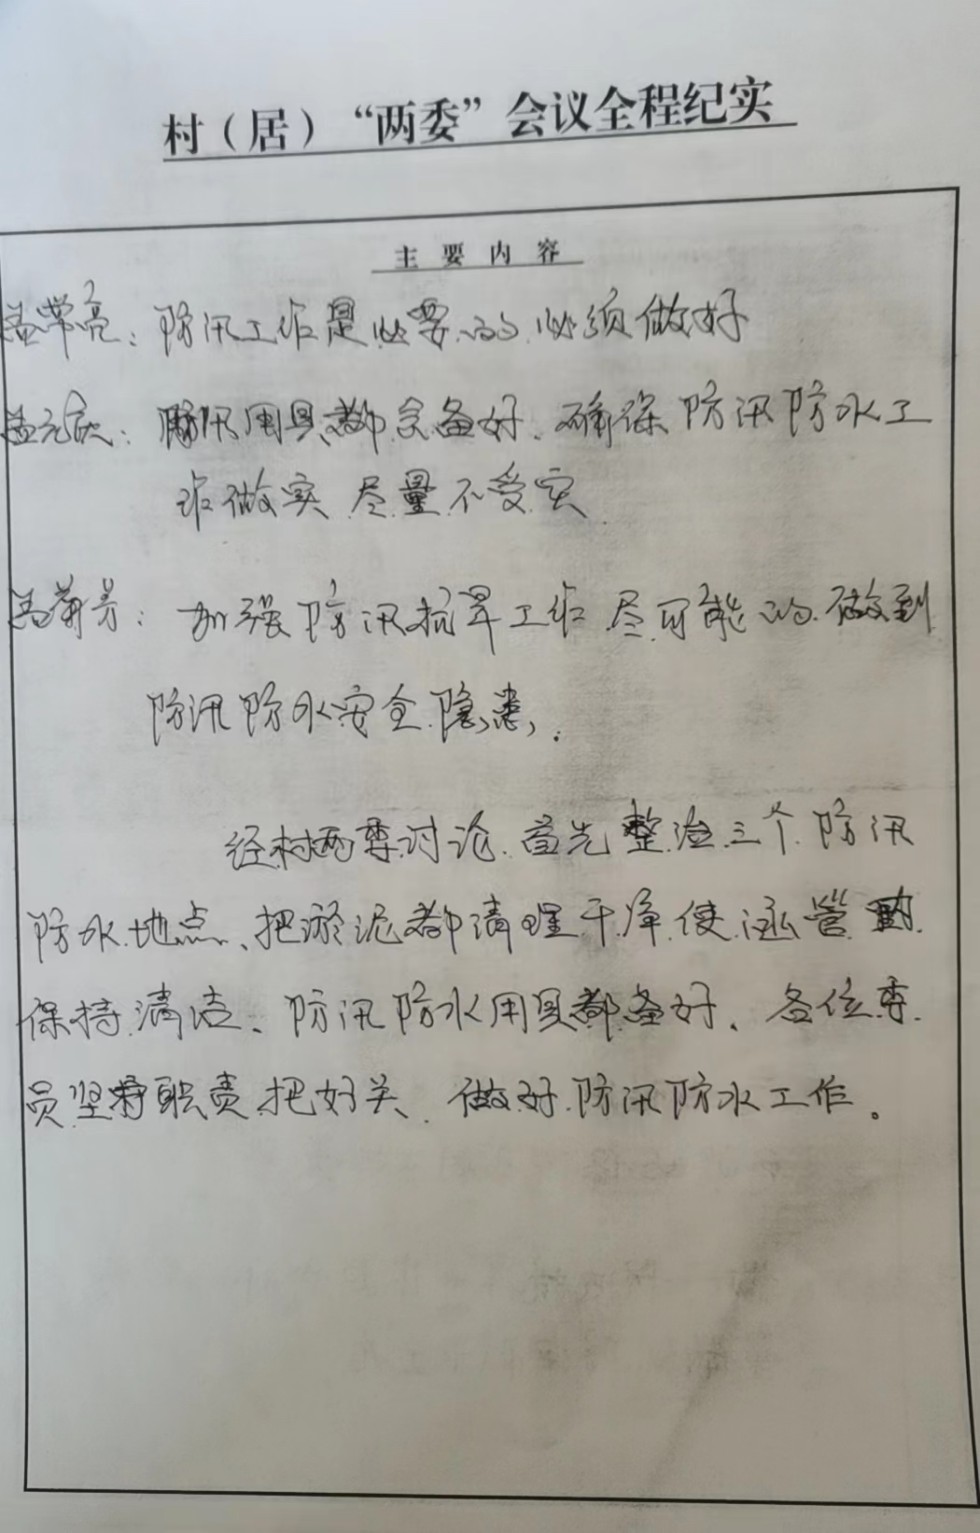 村（居）“两委”会议全程纪实
主要内容
孟常亮：防汛工作是必要的.必须做好
孟元庆：防汛用具都会备好.确保防汛防水工
作做实 尽量不受灾
孟菊芳：加强防汛抗旱工作 尽可能的做到
防汛防水安全隐患,.
经村两委讨论.首先整治三个防汛
防水地点、把淤泥都清理干净使涵管
保持清洁、防汛防水用具都备好、各位委
员坚守职责把好关.做好防汛防水工作。